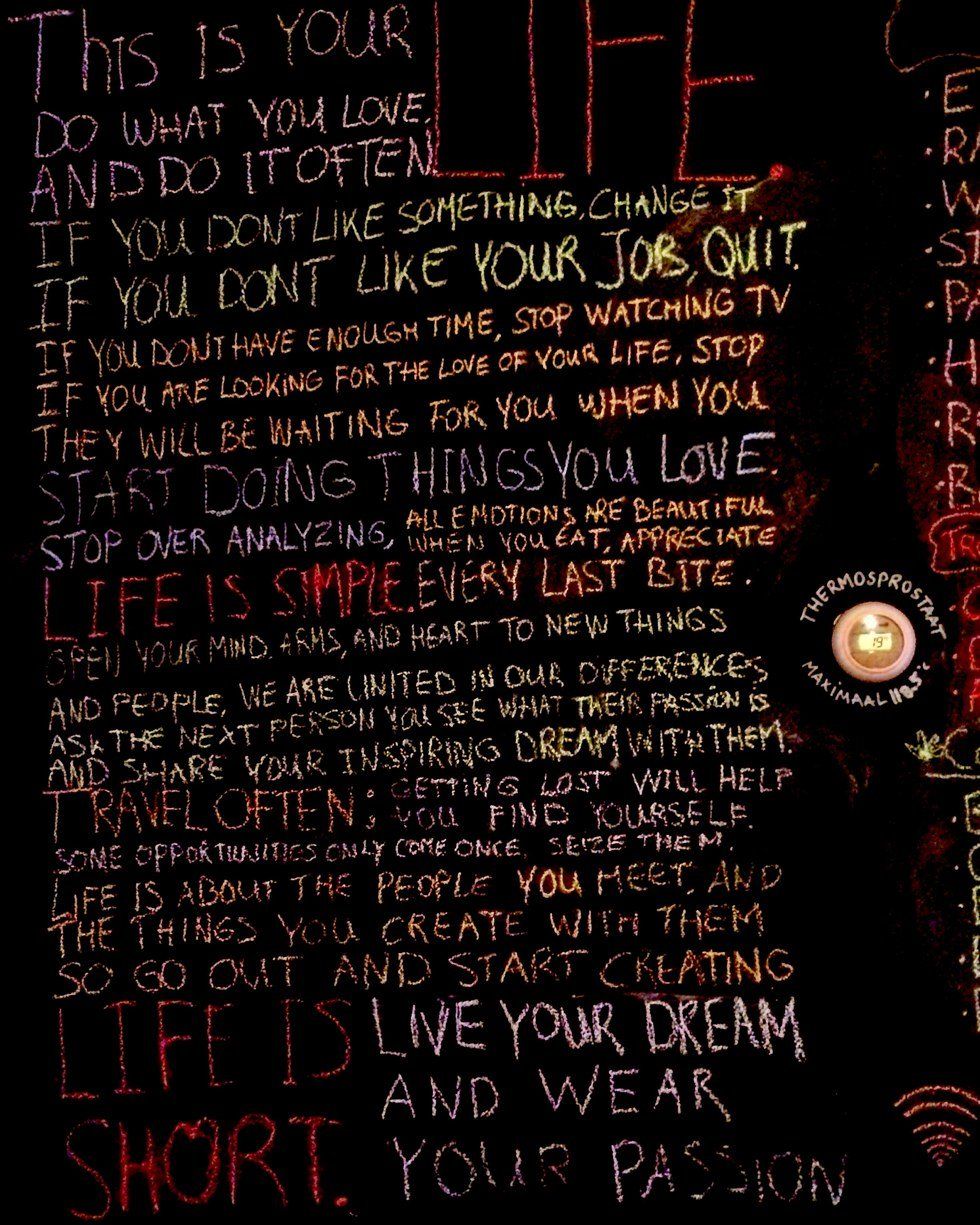 This IS YOUR LIFE.
DO WHAT YOU LOVE,
AND DO IT OFTEN
IF YOU DONT LIKE SOMETHING, CHANGE IT
IF YOU DONT LIKE YOUR JOB, QUIT.
IF YOU DONT HAVE ENOUGH TIME, STOP WATCHING TV
IF YOU ARE LOOKING FOR THE LOVE OF YOUR LIFE, STOP
THEY WILL BE WAITING FOR YOU WHEN YOU
START DOING THINGS YOU LOVE.
STOP OVER ANALYZING,
ALL EMOTIONS ARE BEAUTIFUL
WHEN YOU EAT, APPRECIATE
LIFE IS SIMPLE. EVERY LAST BITE.
OPEN YOUR MIND, ARMS, AND HEART TO NEW THINGS
AND PEOPLE, WE ARE UNITED IN OUR DIFFERENCES
ASK THE NEXT PERSON YOU SEE WHAT THEIR PASSION IS
AND SHARE YOUR INSPIRING DREAM WITH THEM.
TRAVEL OFTEN;
GETTING LOST WILL HELP
YOU FIND YOURSELF.
SOME OPPORTUNITIES ONLY COME ONCE, SEIZE THEM.
LIFE IS ABOUT THE PEOPLE YOU MEET, AND
THE THINGS YOU CREATE WITH THEM
SO GO OUT AND START CREATING
LIFE IS
SHORT.
LIVE YOUR DREAM
AND WEAR
YOUR PASSION
THERMOSPROSTAAT
19
MAXIMAAL